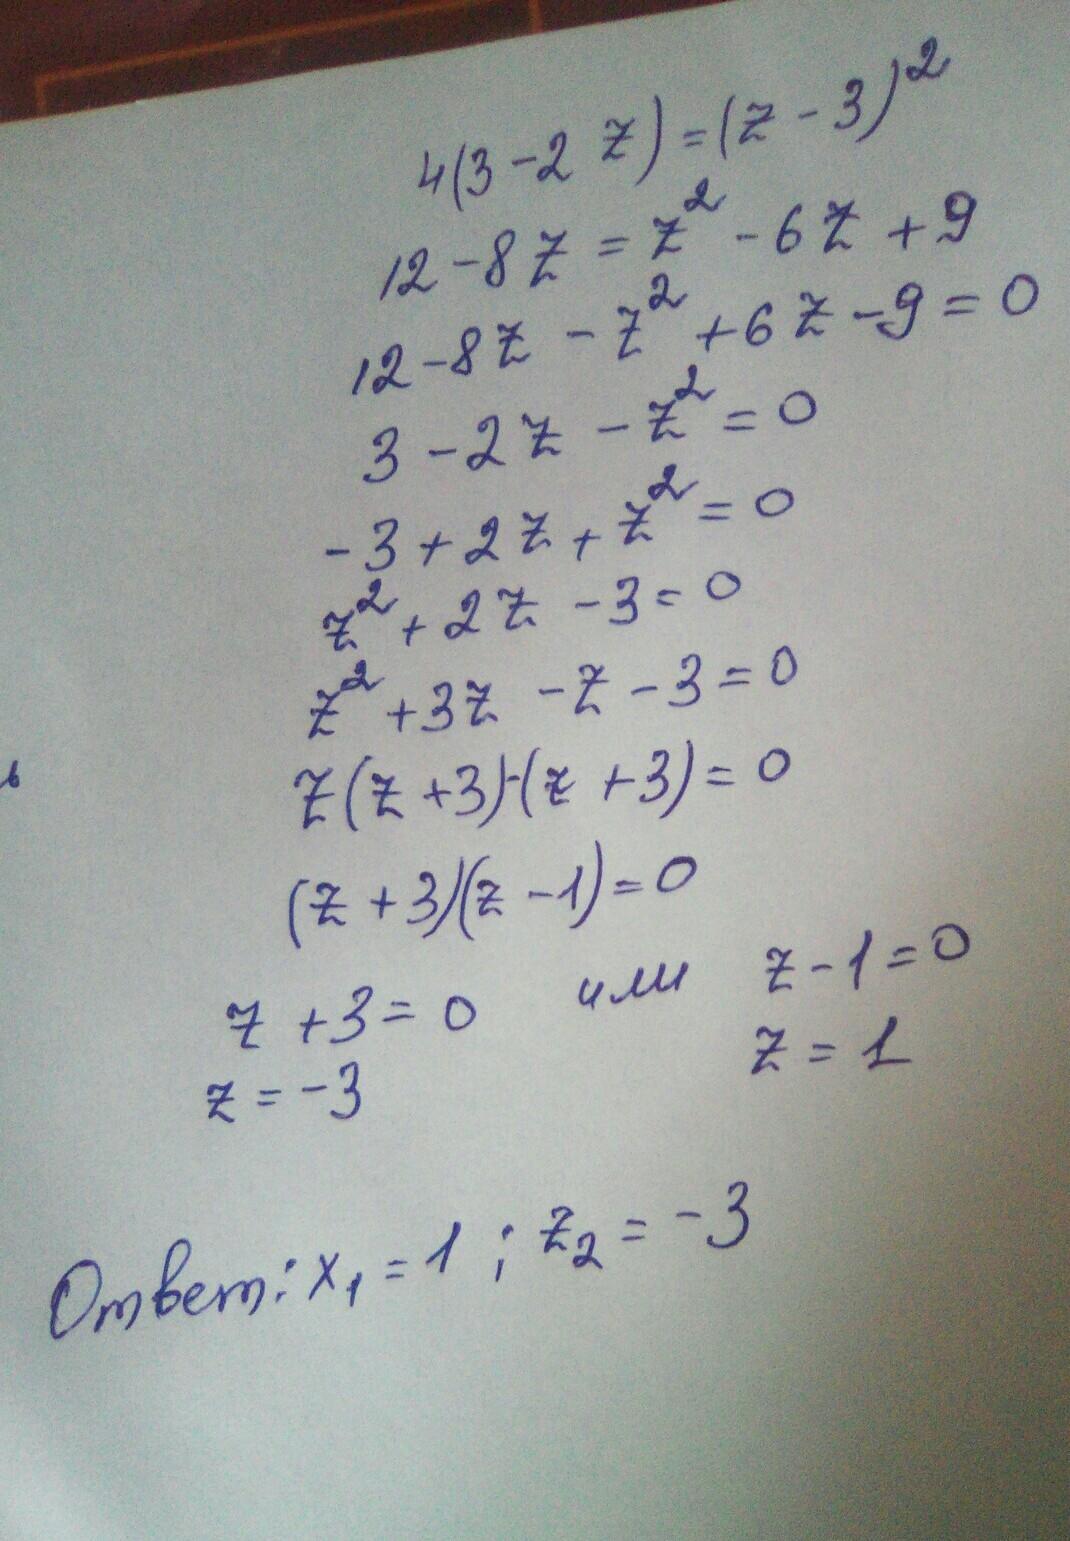 4(3-2 z)=(z-3)²
12-8z=z²-6z+9
12-8z-z²+6z-9=0
3-2z-z²=0
-3+2z+z²=0
z²+2z-3=0
z²+3z-z-3=0
z(z+3)-(z+3)=0
(z+3)(z-1)=0
z+3=0 или z-1=0
z=-3 z=1
Ответ: x₁=1; z₂=-3